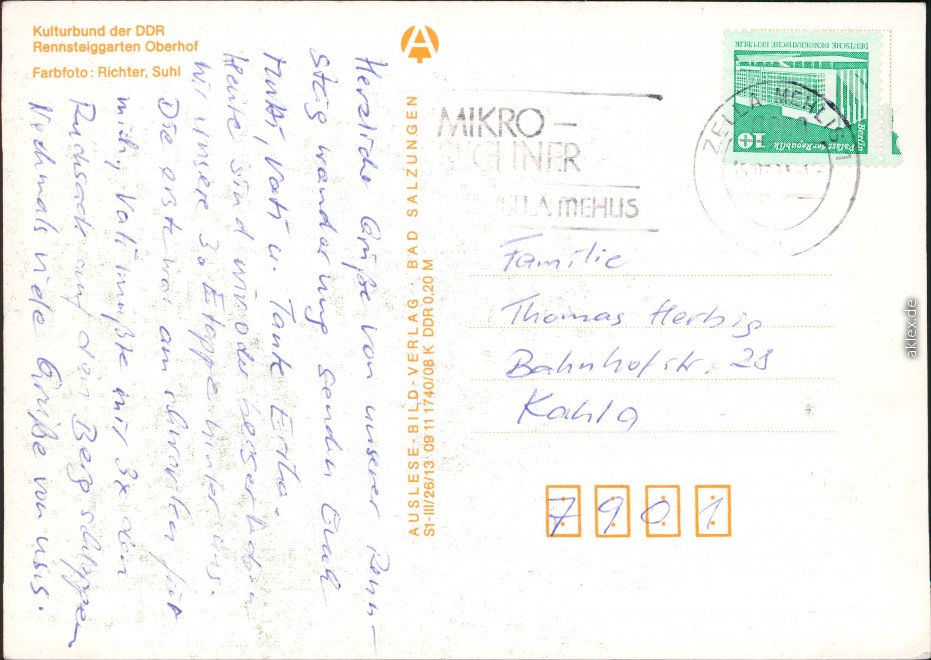 Kulturbund der DDR
Rennsteiggarten Oberhof
Farbfoto: Richter, Suhl
Herzliche Grüße von unserer Renn-
steigwanderung senden Euch
Mutti, Vati u. Tante Erika.
Heute sind wir oder besser haben
wir unsere 3. Etappe hinter uns.
Die erste war am schwersten für
mich, Vati mußte mir 3x den
Rucksack auf den Berg schleppen
Nochmals viele Grüße von uns.
AUSLESE-BILD-VERLAG · BAD SALZUNGEN
St-III/26/13 09 11 1740/08 K DDR 0,20 M
MIKRO-
MEHLIS
ZELLA-MEHLIS
DEUTSCHE DEMOKRATISCHE REPUBLIK
Berlin
Palast der Republik
10
Familie
Thomas Herbig
Bahnhofstr. 28
Kahla
7901
aklex.de